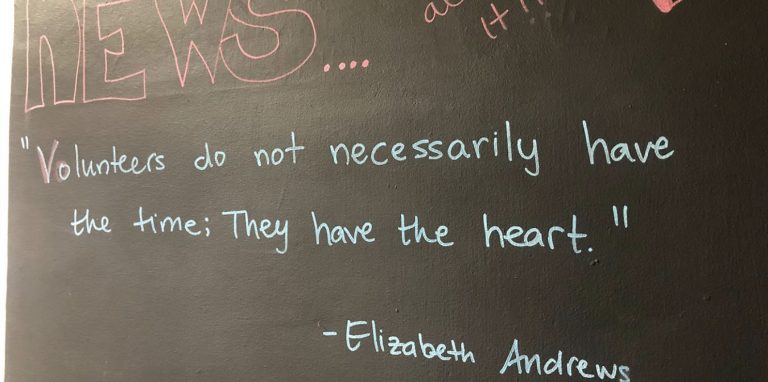 NEWS....
it!!
"Volunteers do not necessarily have
the time; They have the heart."
-Elizabeth Andrews